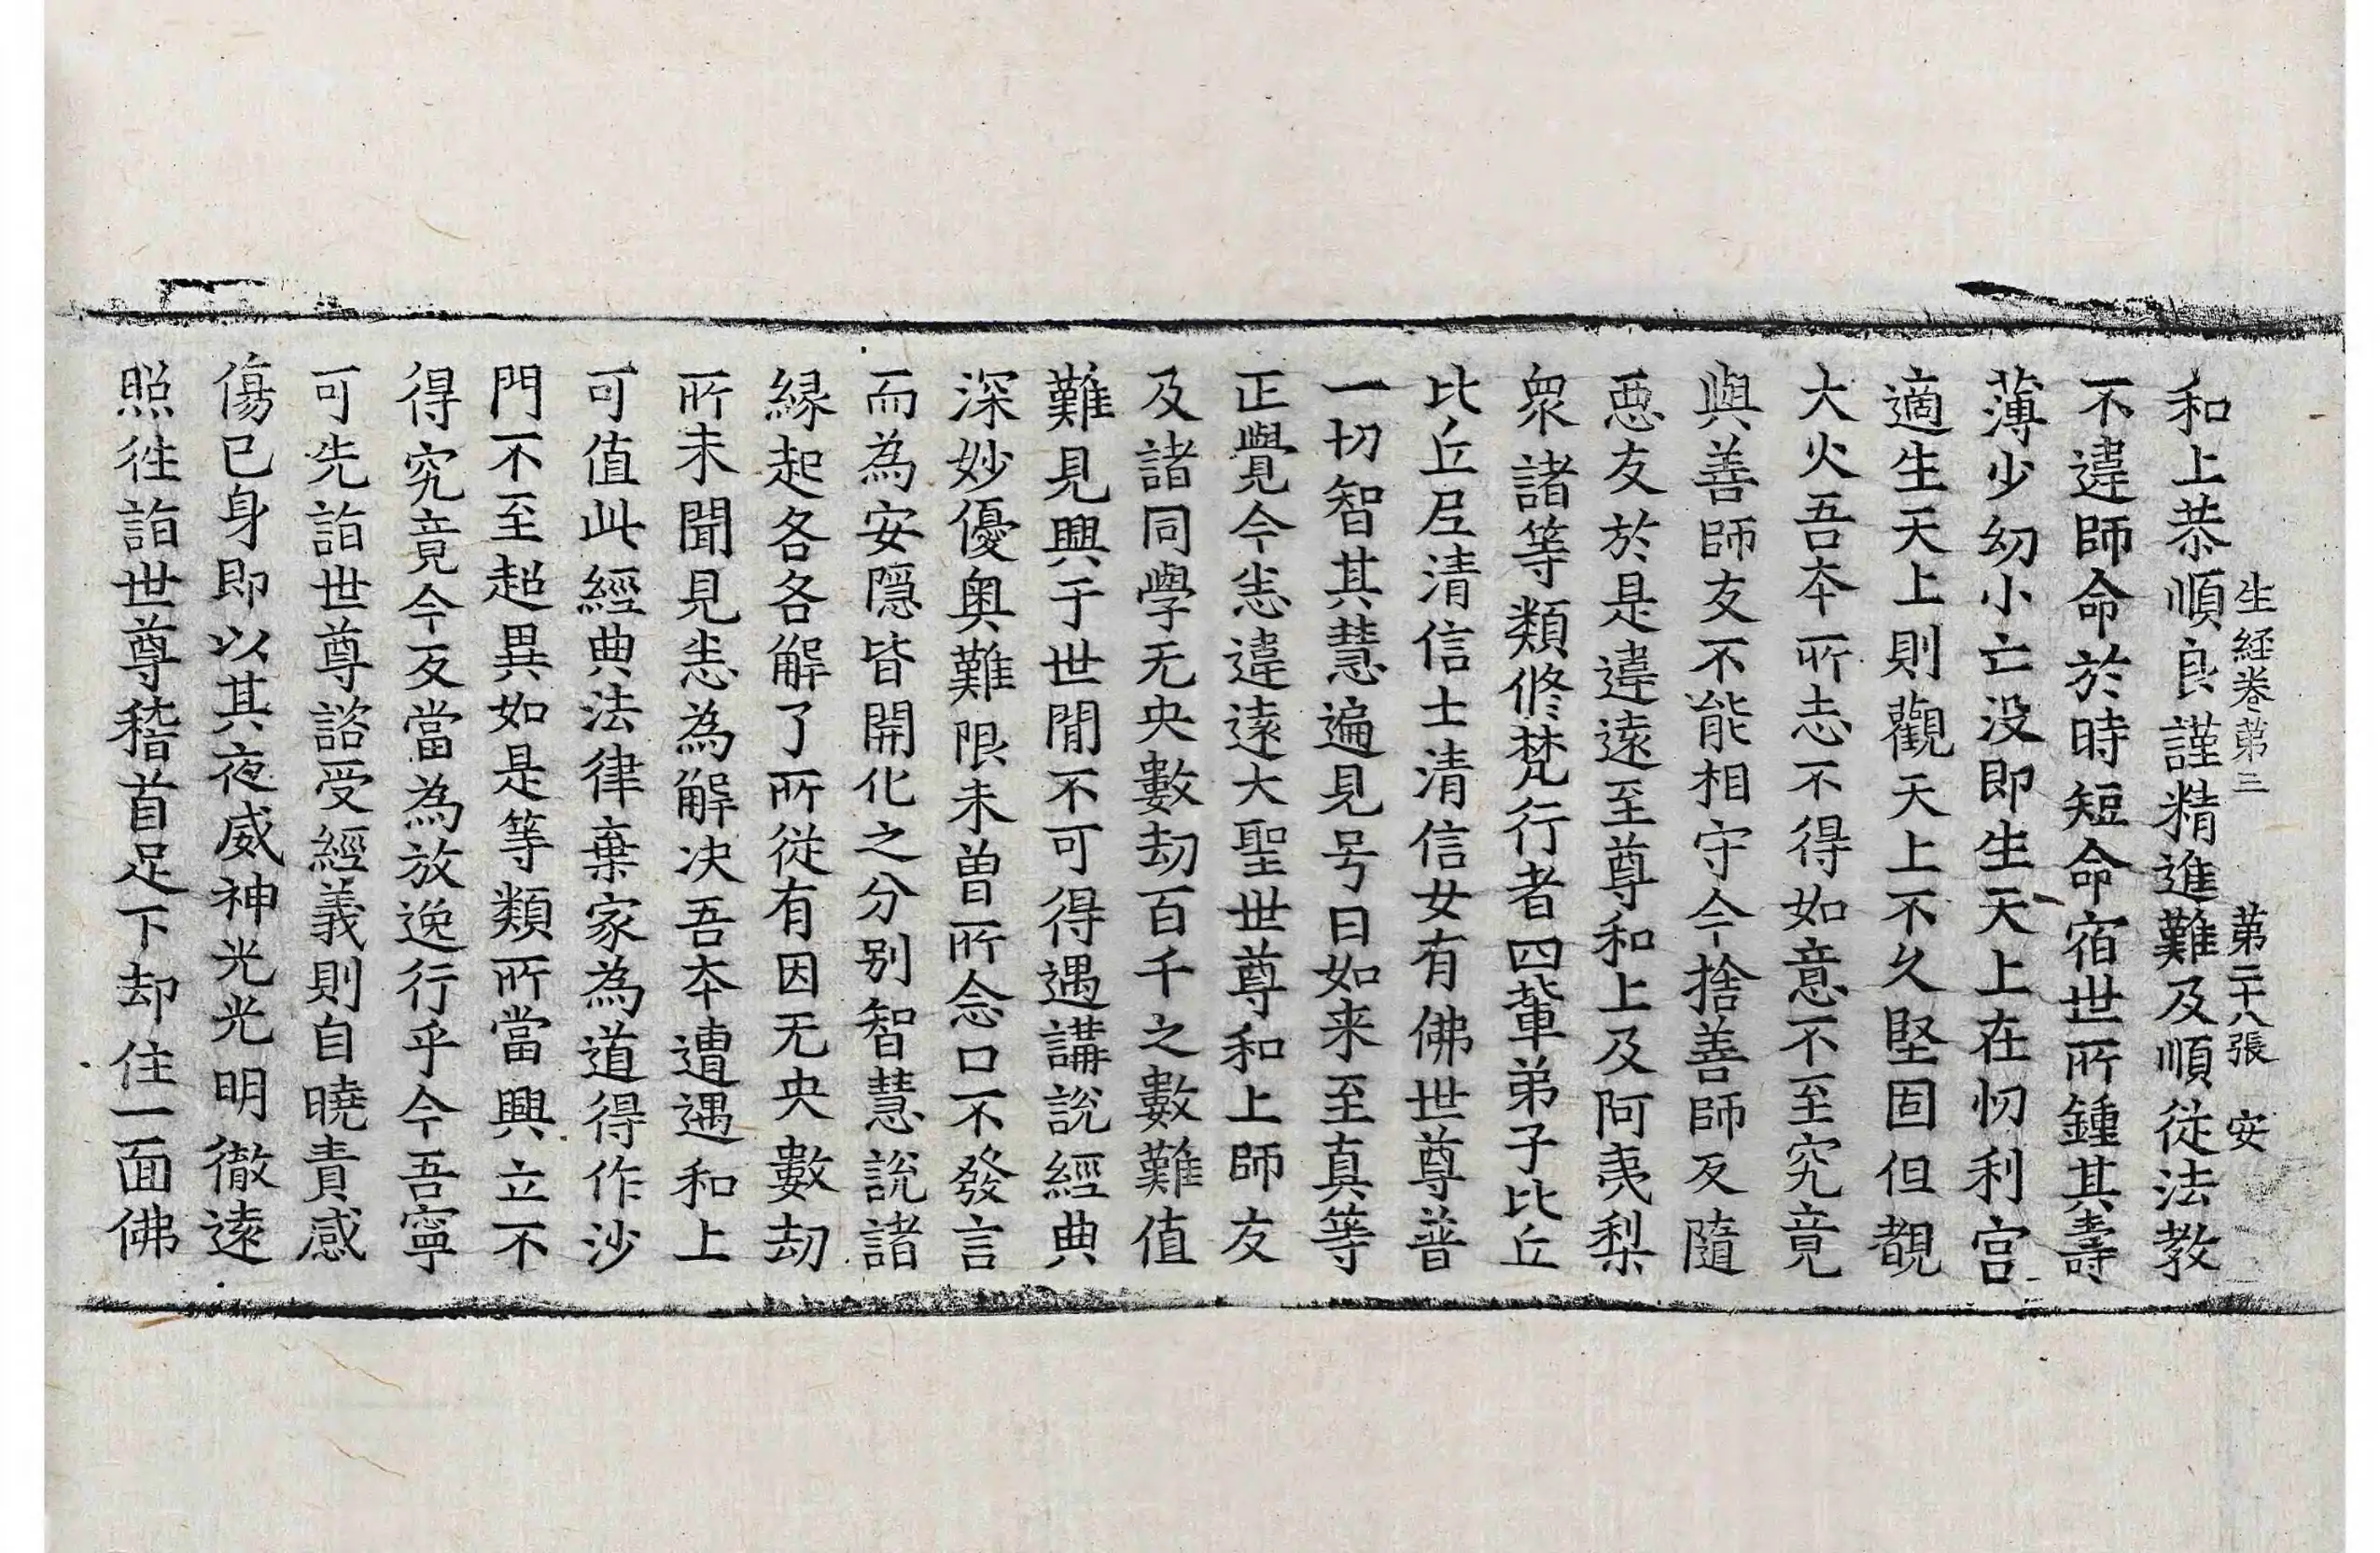 生経卷第三　第二十八張　安
和上恭順良謹精進難及順從法教
不違師命於時短命宿世所鍾其壽
薄少幼小亡没即生天上在忉利宫
適生天上則觀天上不久堅固但覩
大火吾夲所志不得如意不至究竟
與善師友不能相守今捨善師反隨
惡友於是違遠至尊和上及阿夷梨
衆諸等類修梵行者四輩弟子比丘
比丘尼清信士清信女有佛世尊普
一切智其慧遍見号曰如来至真等
正覺今恙違遠大聖世尊和上師友
及諸同學无央數劫百千之數難值
難見興于世間不可得遇講説經典
深妙優奥難限未曽所念口不發言
而為安隱皆開化之分别智慧説諸
縁起各各解了所從有因无央數劫
所未聞見恙為解决吾夲遭遇和上
可值此經典法律棄家為道得作沙
門不至超異如是等類所當興立不
得究竟今反當為放逸行乎今吾寧
可先詣世尊諮受經義則自曉責感
傷已身即以其夜威神光光明徹遠
照徃詣世尊稽首足下却住一面佛